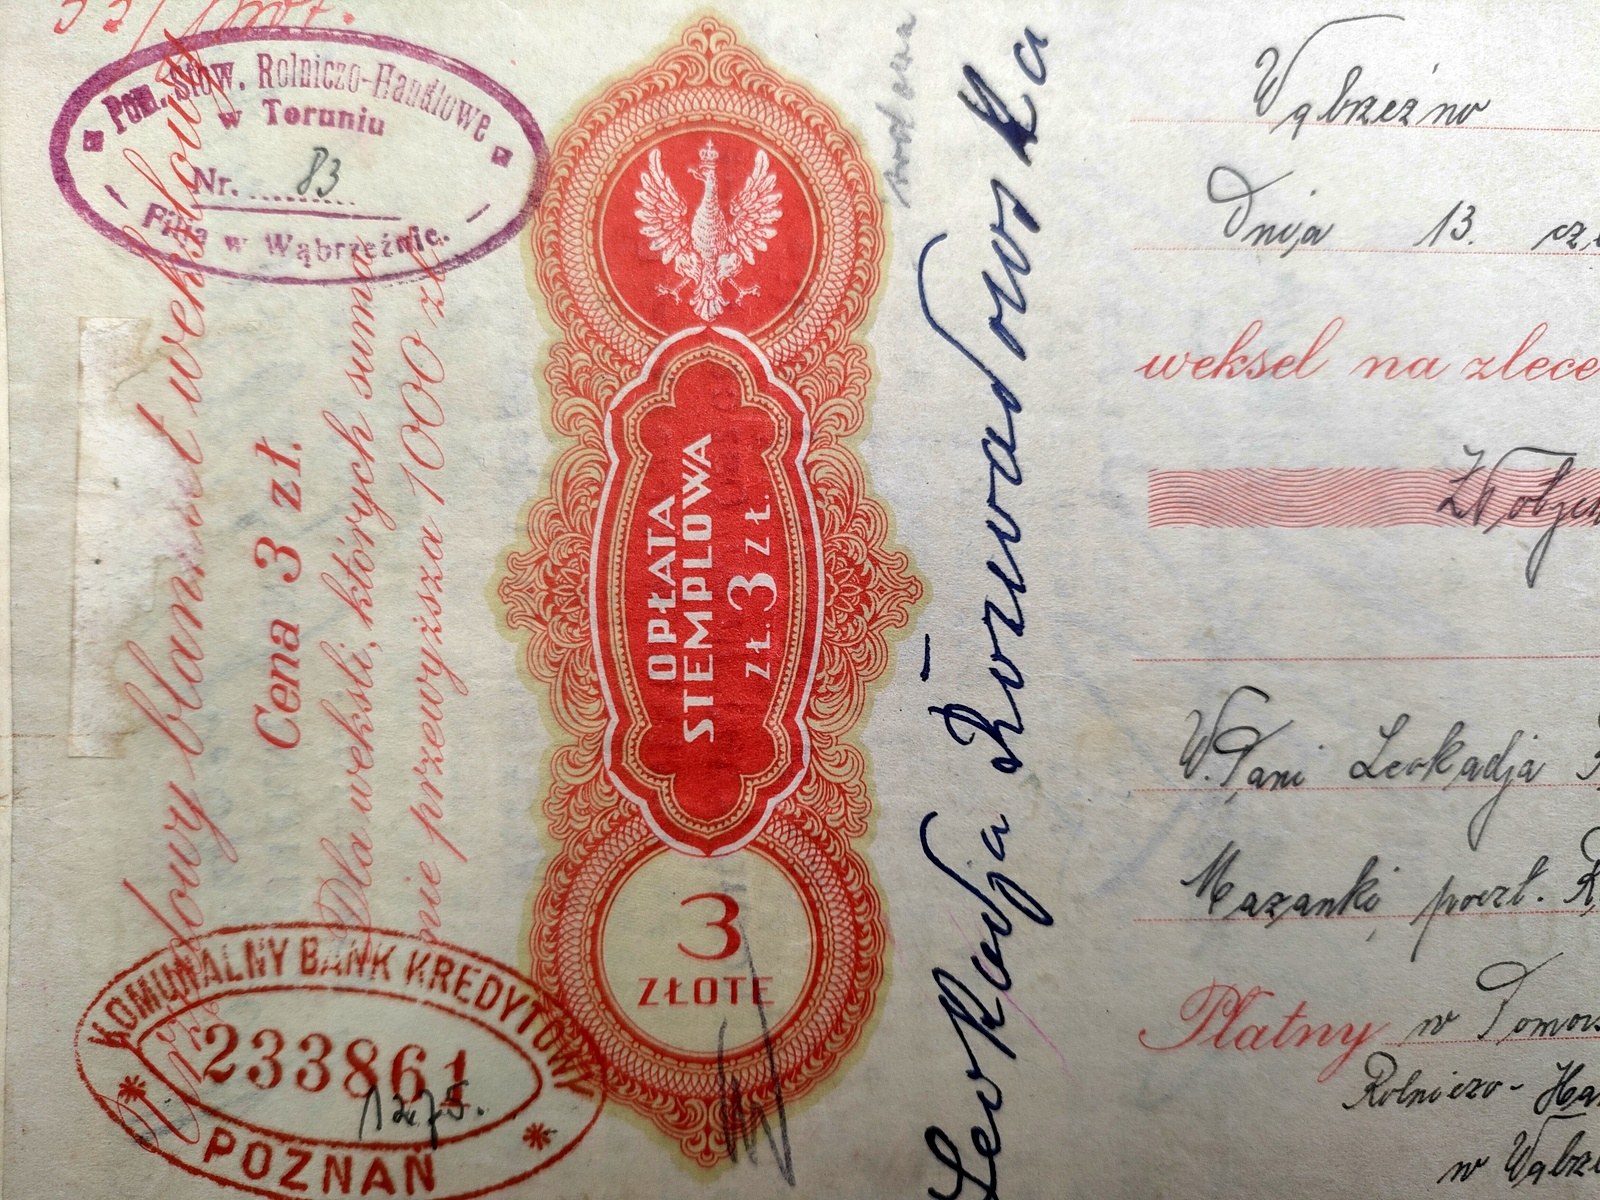 Pom. Stow. Rolniczo-Handlowe
w Toruniu
Nr. 83
Filja w Wąbrzeźnie.
Urzędowy blankiet wekslowy
Cena 3 zł.
Dla weksli, których suma
nie przewyższa 1000 zł
KOMUNALNY BANK KREDYTOWY
233861
POZNAŃ
OPŁATA
STEMPLOWA
ZŁ. 3 ZŁ.
3
ZŁOTE
Leokadja Różewadowska
Wąbrzeźno
Dnia 13.
weksel na zlece
W. Pani Leokadja
Mazanki, poczt.
Płatny w Pomor
Rolniczo- Ha
w Wąbrz